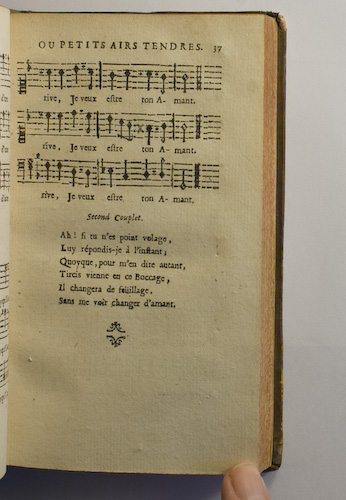 OU PETITS AIRS TENDRES. 37
rive, Je veux estre ton A- mant.
rive, Je veux estre ton A- mant.
rive, Je veux estre ton A- mant.
Second Couplet.
Ah! si tu n'es point volage,
Luy répondis-je à l'instant;
Quoyque, pour m'en dire autant,
Tircis vienne en ce Boccage,
Il changera de feüillage,
Sans me voir changer d'amant.